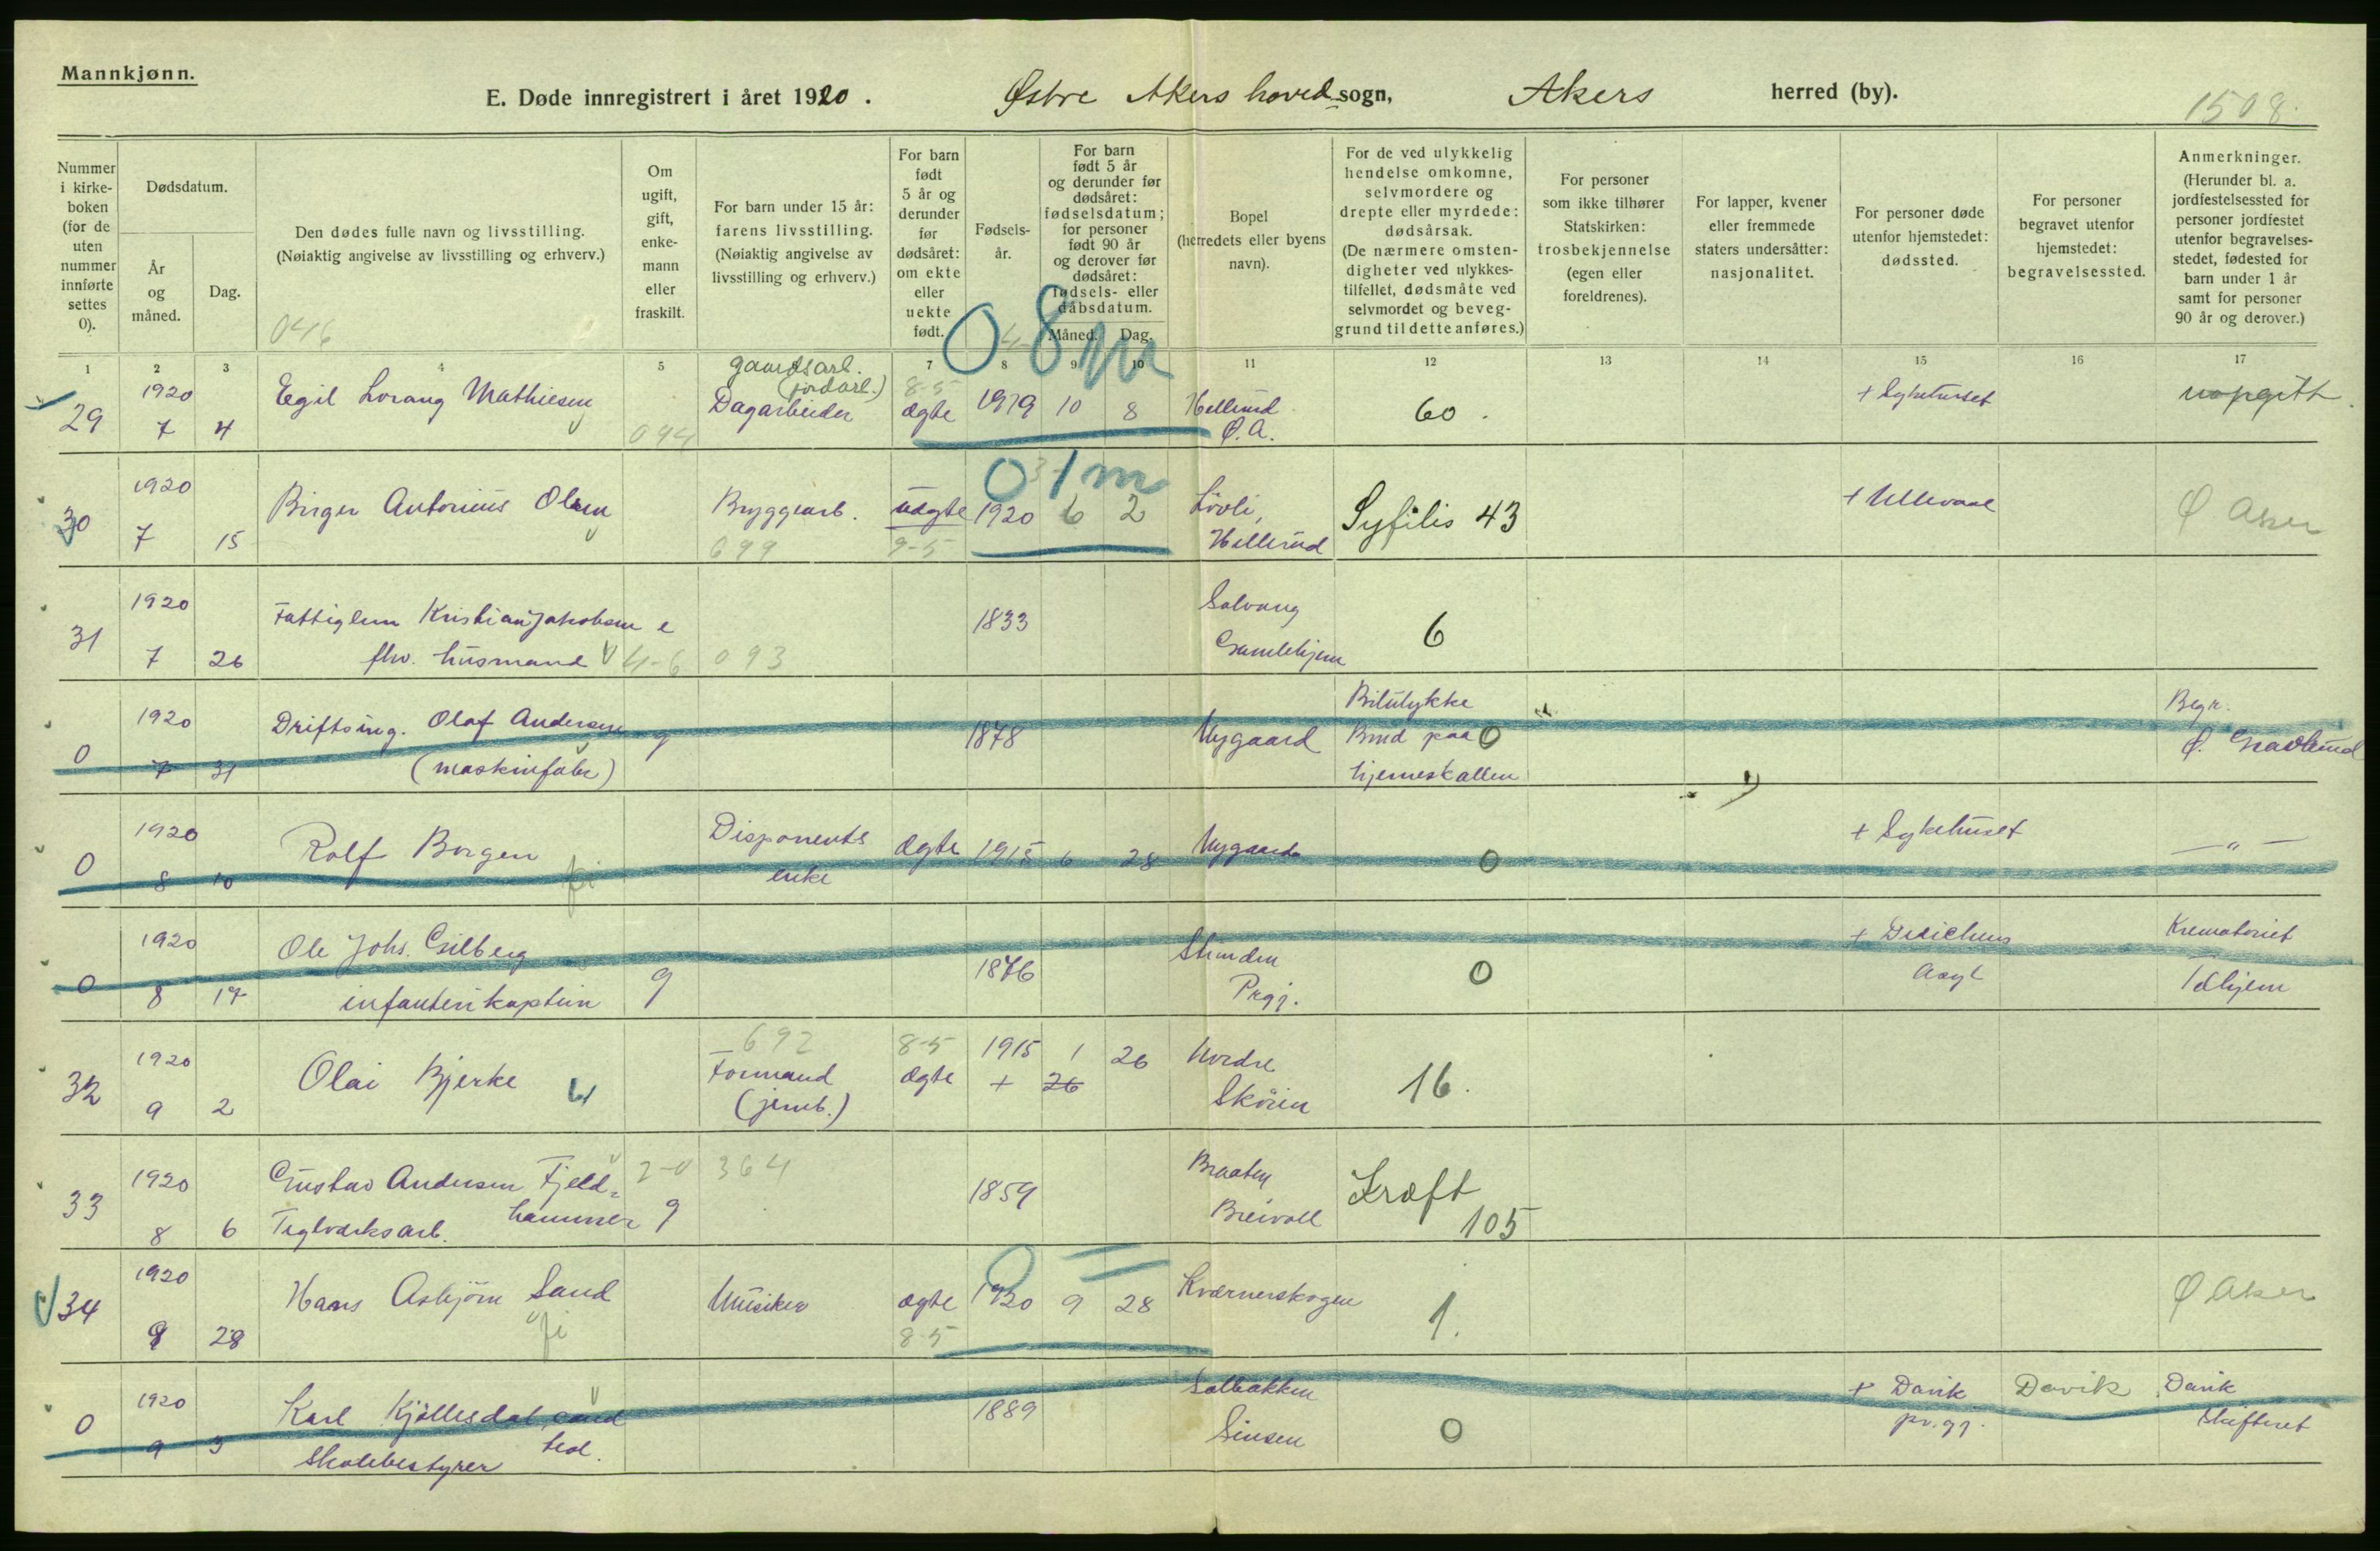 Mannkjønn.
E. Døde innregistrert i året 1920. Østre Akers hovedsogn, Akers herred (by).
1508.
Nummer i kirkeboken (for de uten nummer innførte settes 0).
Dødsdatum.
År og måned.
Dag.
Den dødes fulle navn og livsstilling.
(Nøiaktig angivelse av livsstilling og erhverv.)
046
Om ugift, gift, enkemann eller fraskilt.
For barn under 15 år: farens livsstilling.
(Nøiaktig angivelse av livsstilling og erhverv.)
For barn født 5 år og derunder før dødsåret: om ekte eller uekte født.
Fødselsår.
For barn født 5 år og derunder før dødsåret: fødselsdatum; for personer født 90 år og derover før dødsåret: fødsels- eller dåbsdatum.
Måned. Dag.
Bopel (herredets eller byens navn).
For de ved ulykkelig hendelse omkomne, selvmordere og drepte eller myrdede: dødsårsak.
(De nærmere omstendigheter ved ulykkestilfellet, dødsmåte ved selvmordet og beveggrund til dette anføres.)
For personer som ikke tilhører Statskirken: trosbekjennelse (egen eller foreldrenes).
For lapper, kvener eller fremmede staters undersåtter: nasjonalitet.
For personer døde utenfor hjemstedet: dødssted.
For personer begravet utenfor hjemstedet: begravelsessted.
Anmerkninger.
(Herunder bl. a. jordfestelsessted for personer jordfestet utenfor begravelsesstedet, fødested for barn under 1 år samt for personer 90 år og derover.)
1 2 3 4 5 7 8 9 10 11 12 13 14 15 16 17
0 8 m
gaardsarb.
(jordarb.) 8-5
29 1920 7 4 Egil Lorang Mathiesen 094 Dagarbeider ægte 1919 10 8 Hellerud Ø.A. 60. + Sykehuset uopgitt.
0 1 m
30 1920 7 15 Birger Antonius Olsen Bryggearb. uægte 1920 6 2 Lövli, Hellerud Syfilis 43 + Ullevaal Ø Aker
699 9-5
31 1920 7 26 Fattiglem Kristian Jakobsen e 1833 Solvang Gamlehjem 6
fhv. husmand 4-6 093
0 1920 7 31 Driftsing. Olaf Andersen g 1878 Nygaard Bilulykke Brud paa hjerneskallen 0 Begr. Ø. Gravlund
(maskinfabr)
0 1920 8 10 Rolf Borgen Disponents enke ægte 1915 6 28 Nygaard 0 + Sykehuset — " —
0 1920 8 17 Ole Johs. Gilberg g 1876 0 + Asyl Krematoriet
infanterikaptein Prgj.
692 8-5
32 1920 9 2 Olai Bjerke Formand (jernb.) ægte 1915 1 26 Nordre Skøien 16.
+ 26
33 1920 8 6 Gustav Andersen Fjeldhammer 2-0 g 364 1859 Braaten Breivoll Kræft 105
Teglverksarb.
34 1920 9 28 Hans Asbjørn Sand Musiker ægte 1920 9 28 Kværnerskogen 1. Ø Aker
8-5
0 1920 9 3 Karl Kjøllesdal, cand teol. 1889 Solbakken Sinsen 0 + Davik pr.gj. Davik Davik
Skolebestyrer Skifteret